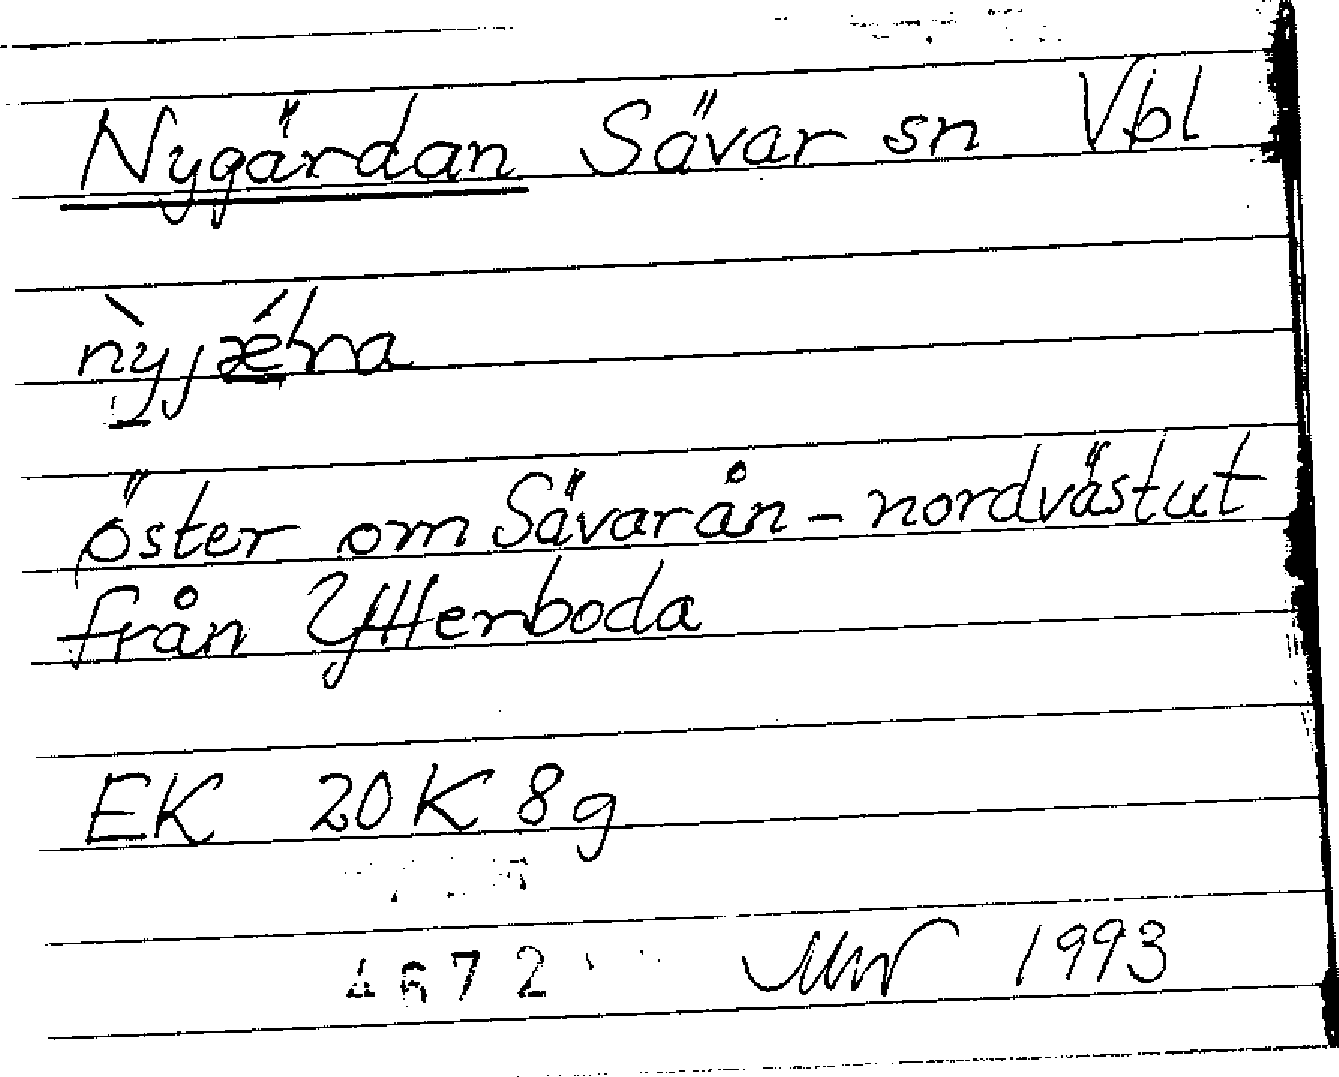 Nygärdan Sävar sn Vbl
öster om Sävarån - nordvästut
från Ytterboda
EK 20K 8g
4672 1993